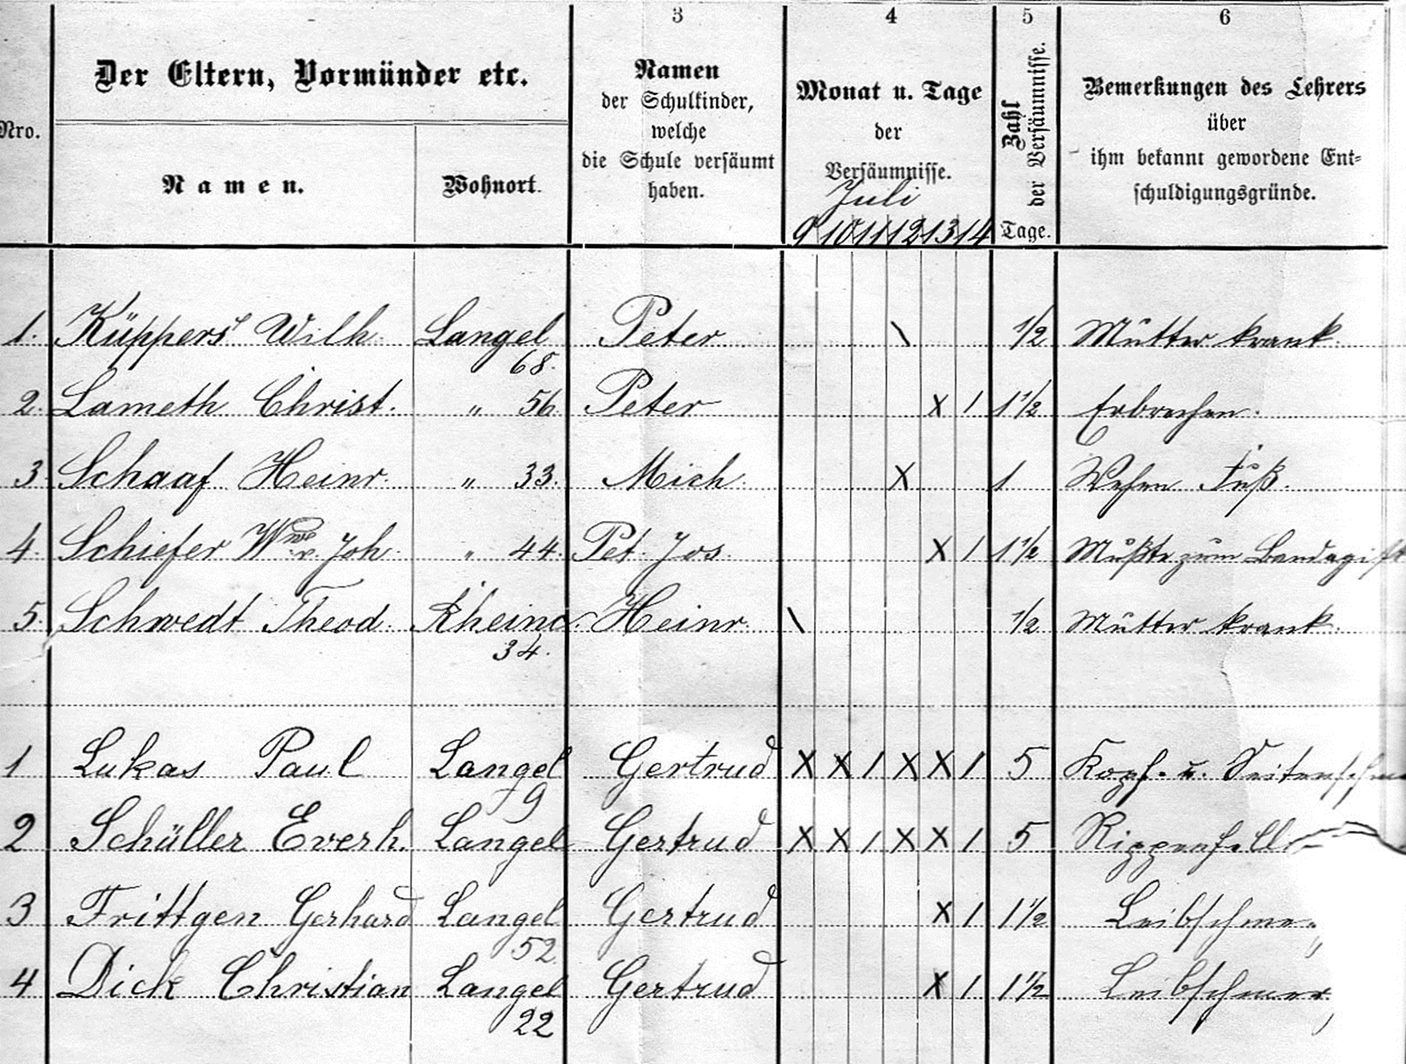 3 4 5 6
Der Eltern, Vormünder etc.
Nro.
Namen.
Wohnort.
Namen
der Schulkinder,
welche
die Schule versäumt
haben.
Monat u. Tage
der
Versäumnisse.
Juli
9 10 11 12 13 14
Zahl
der Versäumnisse.
Tage.
Bemerkungen des Lehrers
über
ihm bekannt gewordene Ent-
schuldigungsgründe.
1. Küppers Wilh. Langel Peter \ 1/2 Mutter krank.
68.
2. Lameth Christ. " 56. Peter x / 1 1/2 Erbrechen.
3. Schaaf Heinr. " 33. Mich. x 1 Wehen Fuß.
4. Schiefer Wwe v. Joh. " 44. Pet. Jos. x / 1 1/2 Mußte zum Bandagist
5. Schwedt Theod. Rheinc. Heinr. \ 1/2 Mutter krank.
34.
1 Lukas Paul Langel Gertrud x x / x x / 5 Kopf- u. Seitenschm
9
2 Schüller Everh. Langel Gertrud x x / x x / 5 Rippenfell
3 Frittgen Gerhard Langel Gertrud x / 1 1/2 Leibschmer
52
4 Dick Christian Langel Gertrud x / 1 1/2 Leibschmer
22